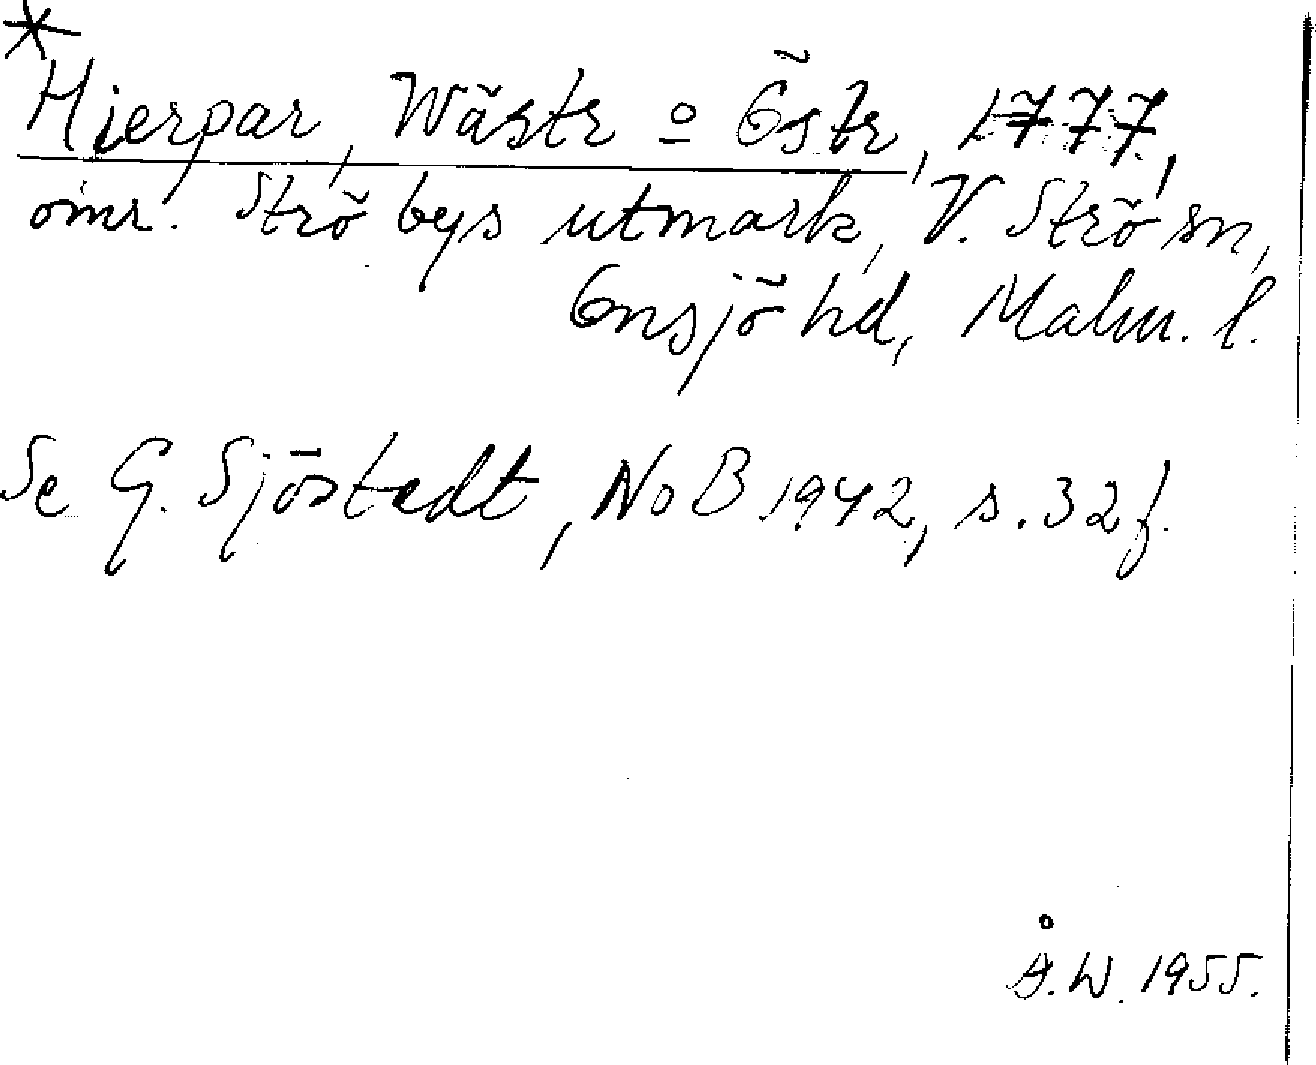 *
Hierpar, Wästr o Östr, 1777,
omr. Strö bys utmark, V. Strö sn,
Onsjö hd, Malm. l.
Se G. Sjöstedt, NoB 1942, s. 32 f.
Å.W. 1955.